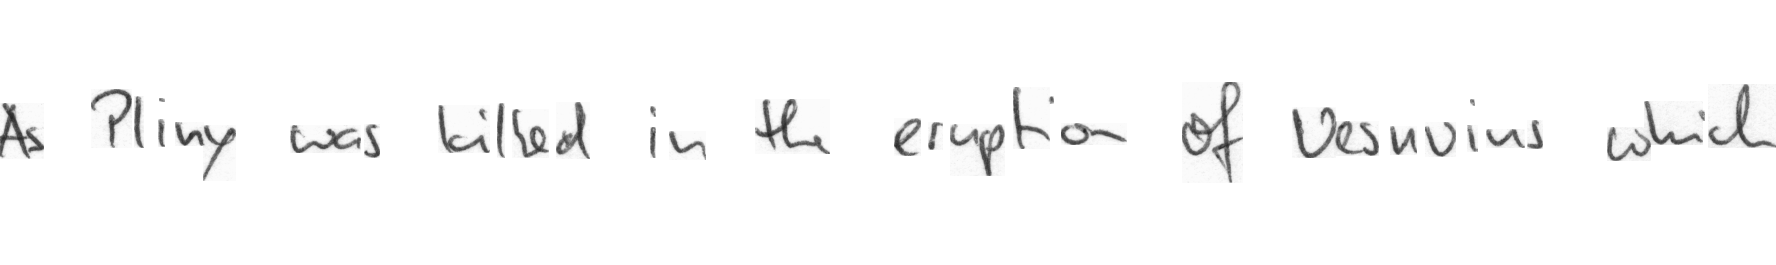 As Pliny was killed in the eruption of Vesuvius which